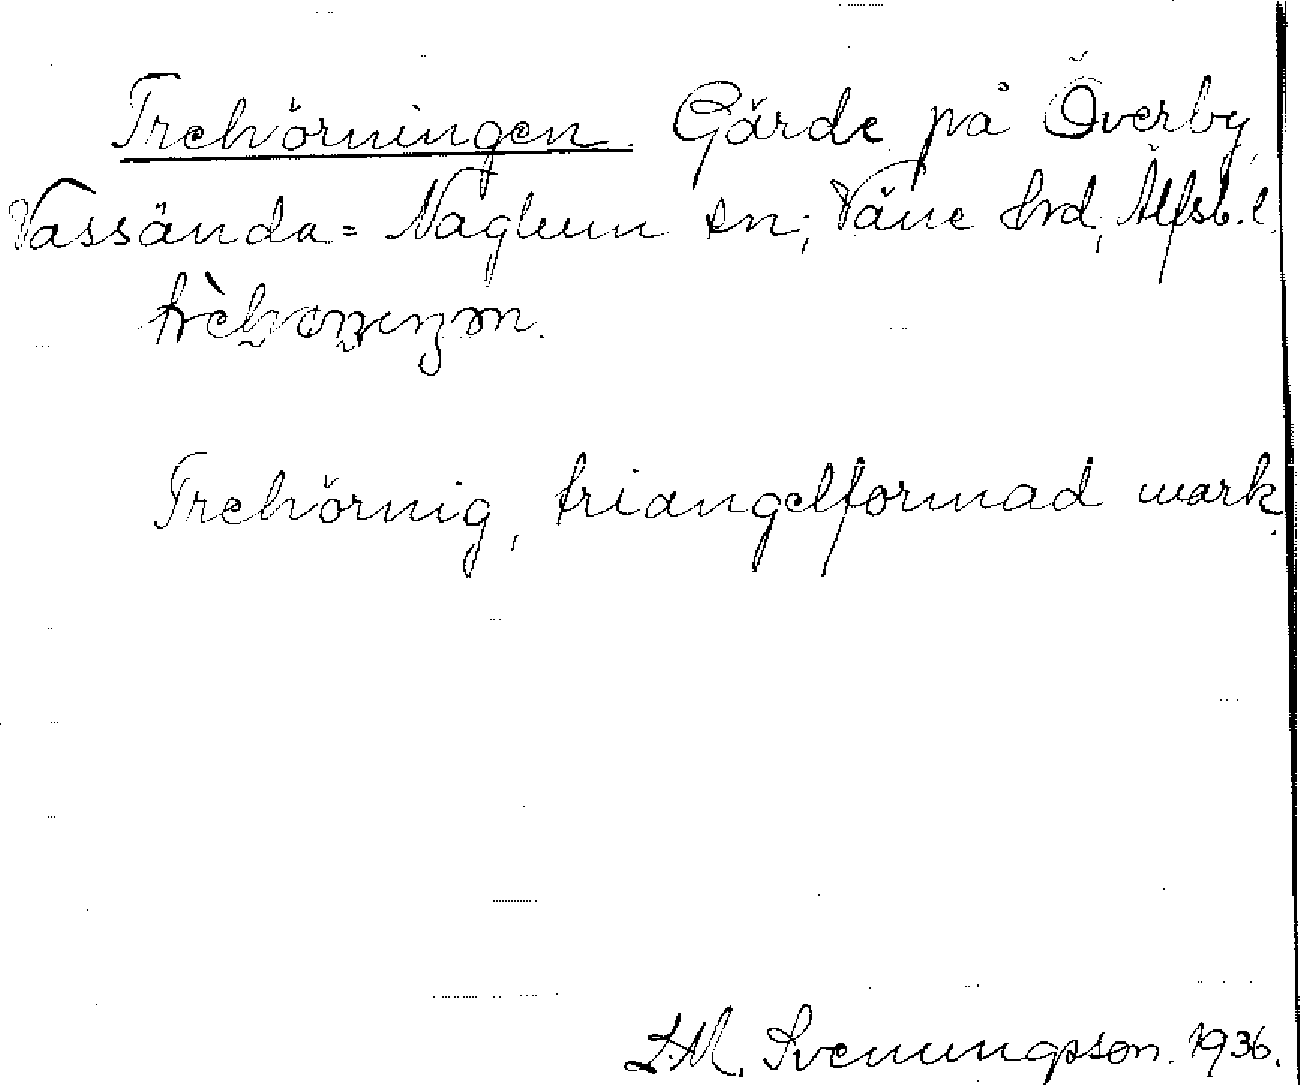 Trehörningen. Gärde på Överby,
Vassända-Naglum sn; Väne hrd, Älfsb. l.
Trehörnig, triangelformad mark.
L.M. Svenungsson. 1936.